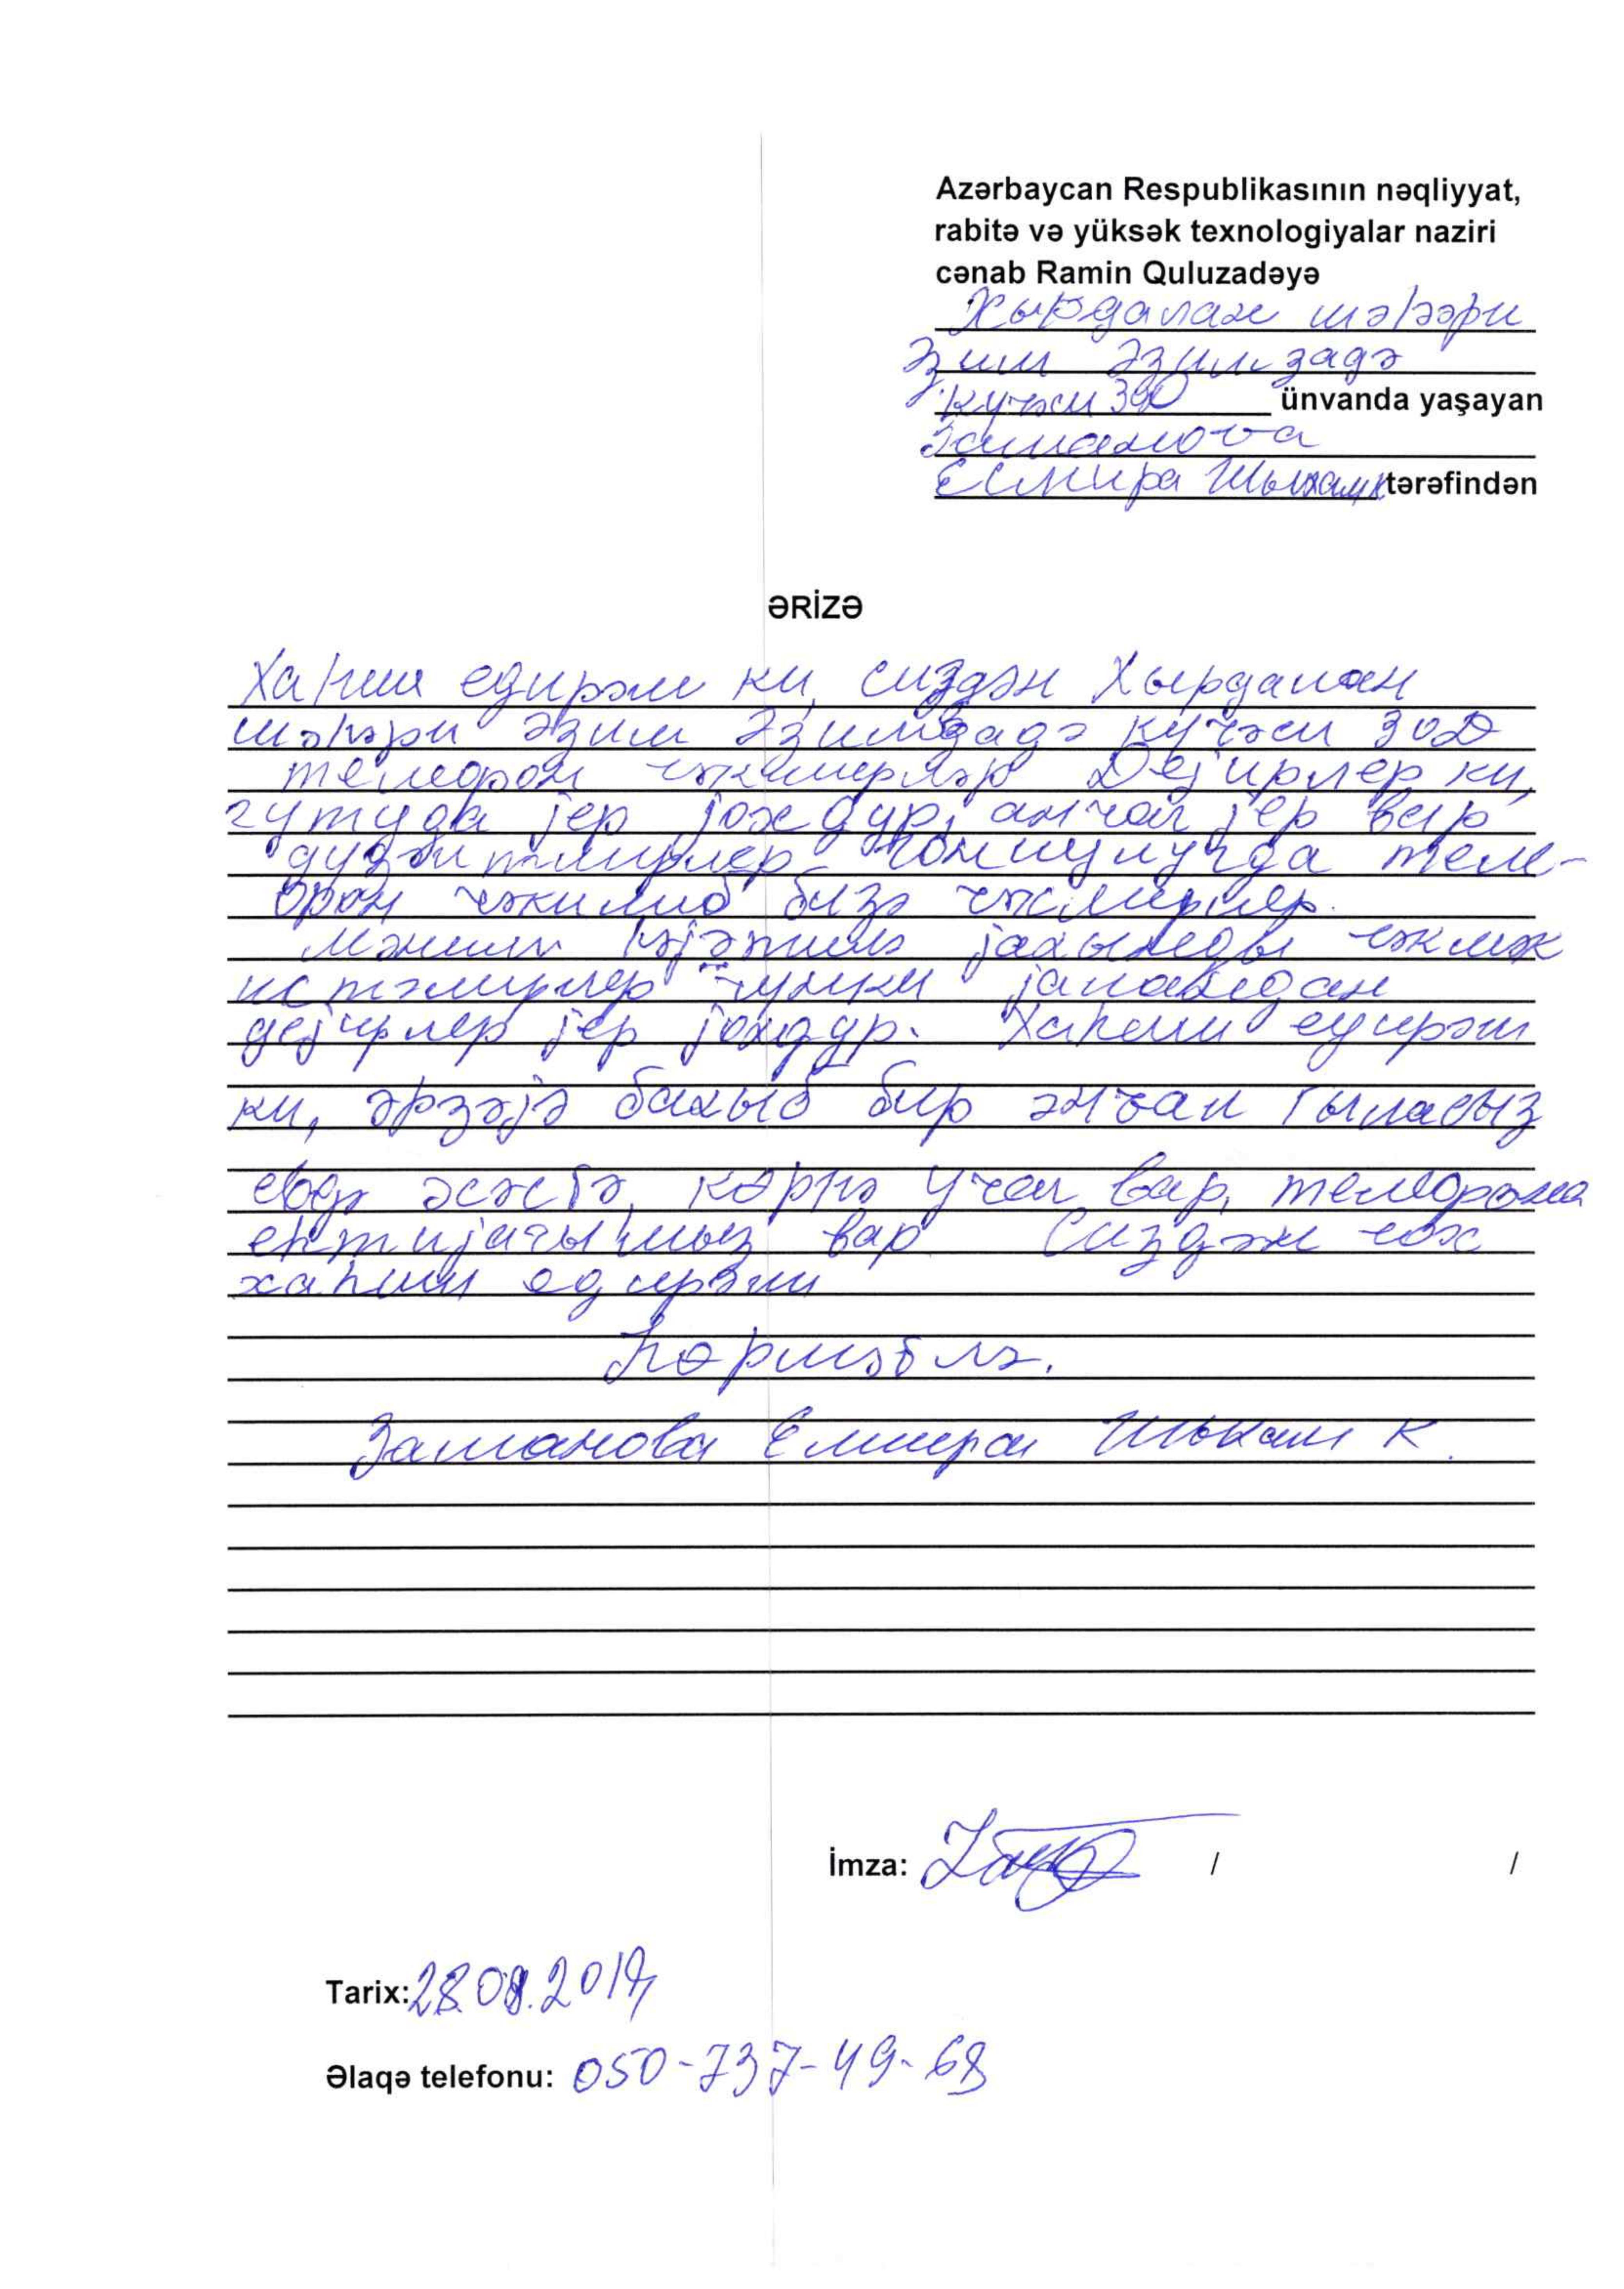 Azərbaycan Respublikasının nəqliyyat,
rabitə və yüksək texnologiyalar naziri
cənab Ramin Quluzadəyə
Хырдалан шәһәри
Әзим Әзимзадә
күчәси 30D ünvanda yaşayan
Заманова
Елмира Шыхам к tərəfindən
ƏRİZƏ
Хаһиш едирәм ки, сиздән Хырдалан
шәһәри Әзим Әзимзадә күчәси 30D
телефон чәкмирләр Дејирлер ки,
гутуда јер јохдур, анчаг јер вар
дүзәлтмирлер гоншулугда теле-
фон чәкилиб бизә чәкмирлер.
Мәним һәјәтим јахында чәкмәк
истәмирлер чүнки јаландан
дејирлер јер јохдур. Хаһиш едирәм
ки, әрзәјә бахыб бир әнчам гыласыз
евдә хәстә, көрпә ушаг вар, телефона
еһтијачымыз вар Сиздән чох
хаһиш едирәм
һөрмәтлә.
Заманова Елмира Шыхам к.
İmza: / /
Tarix: 28.08.2017
Əlaqə telefonu: 050-737-49-68